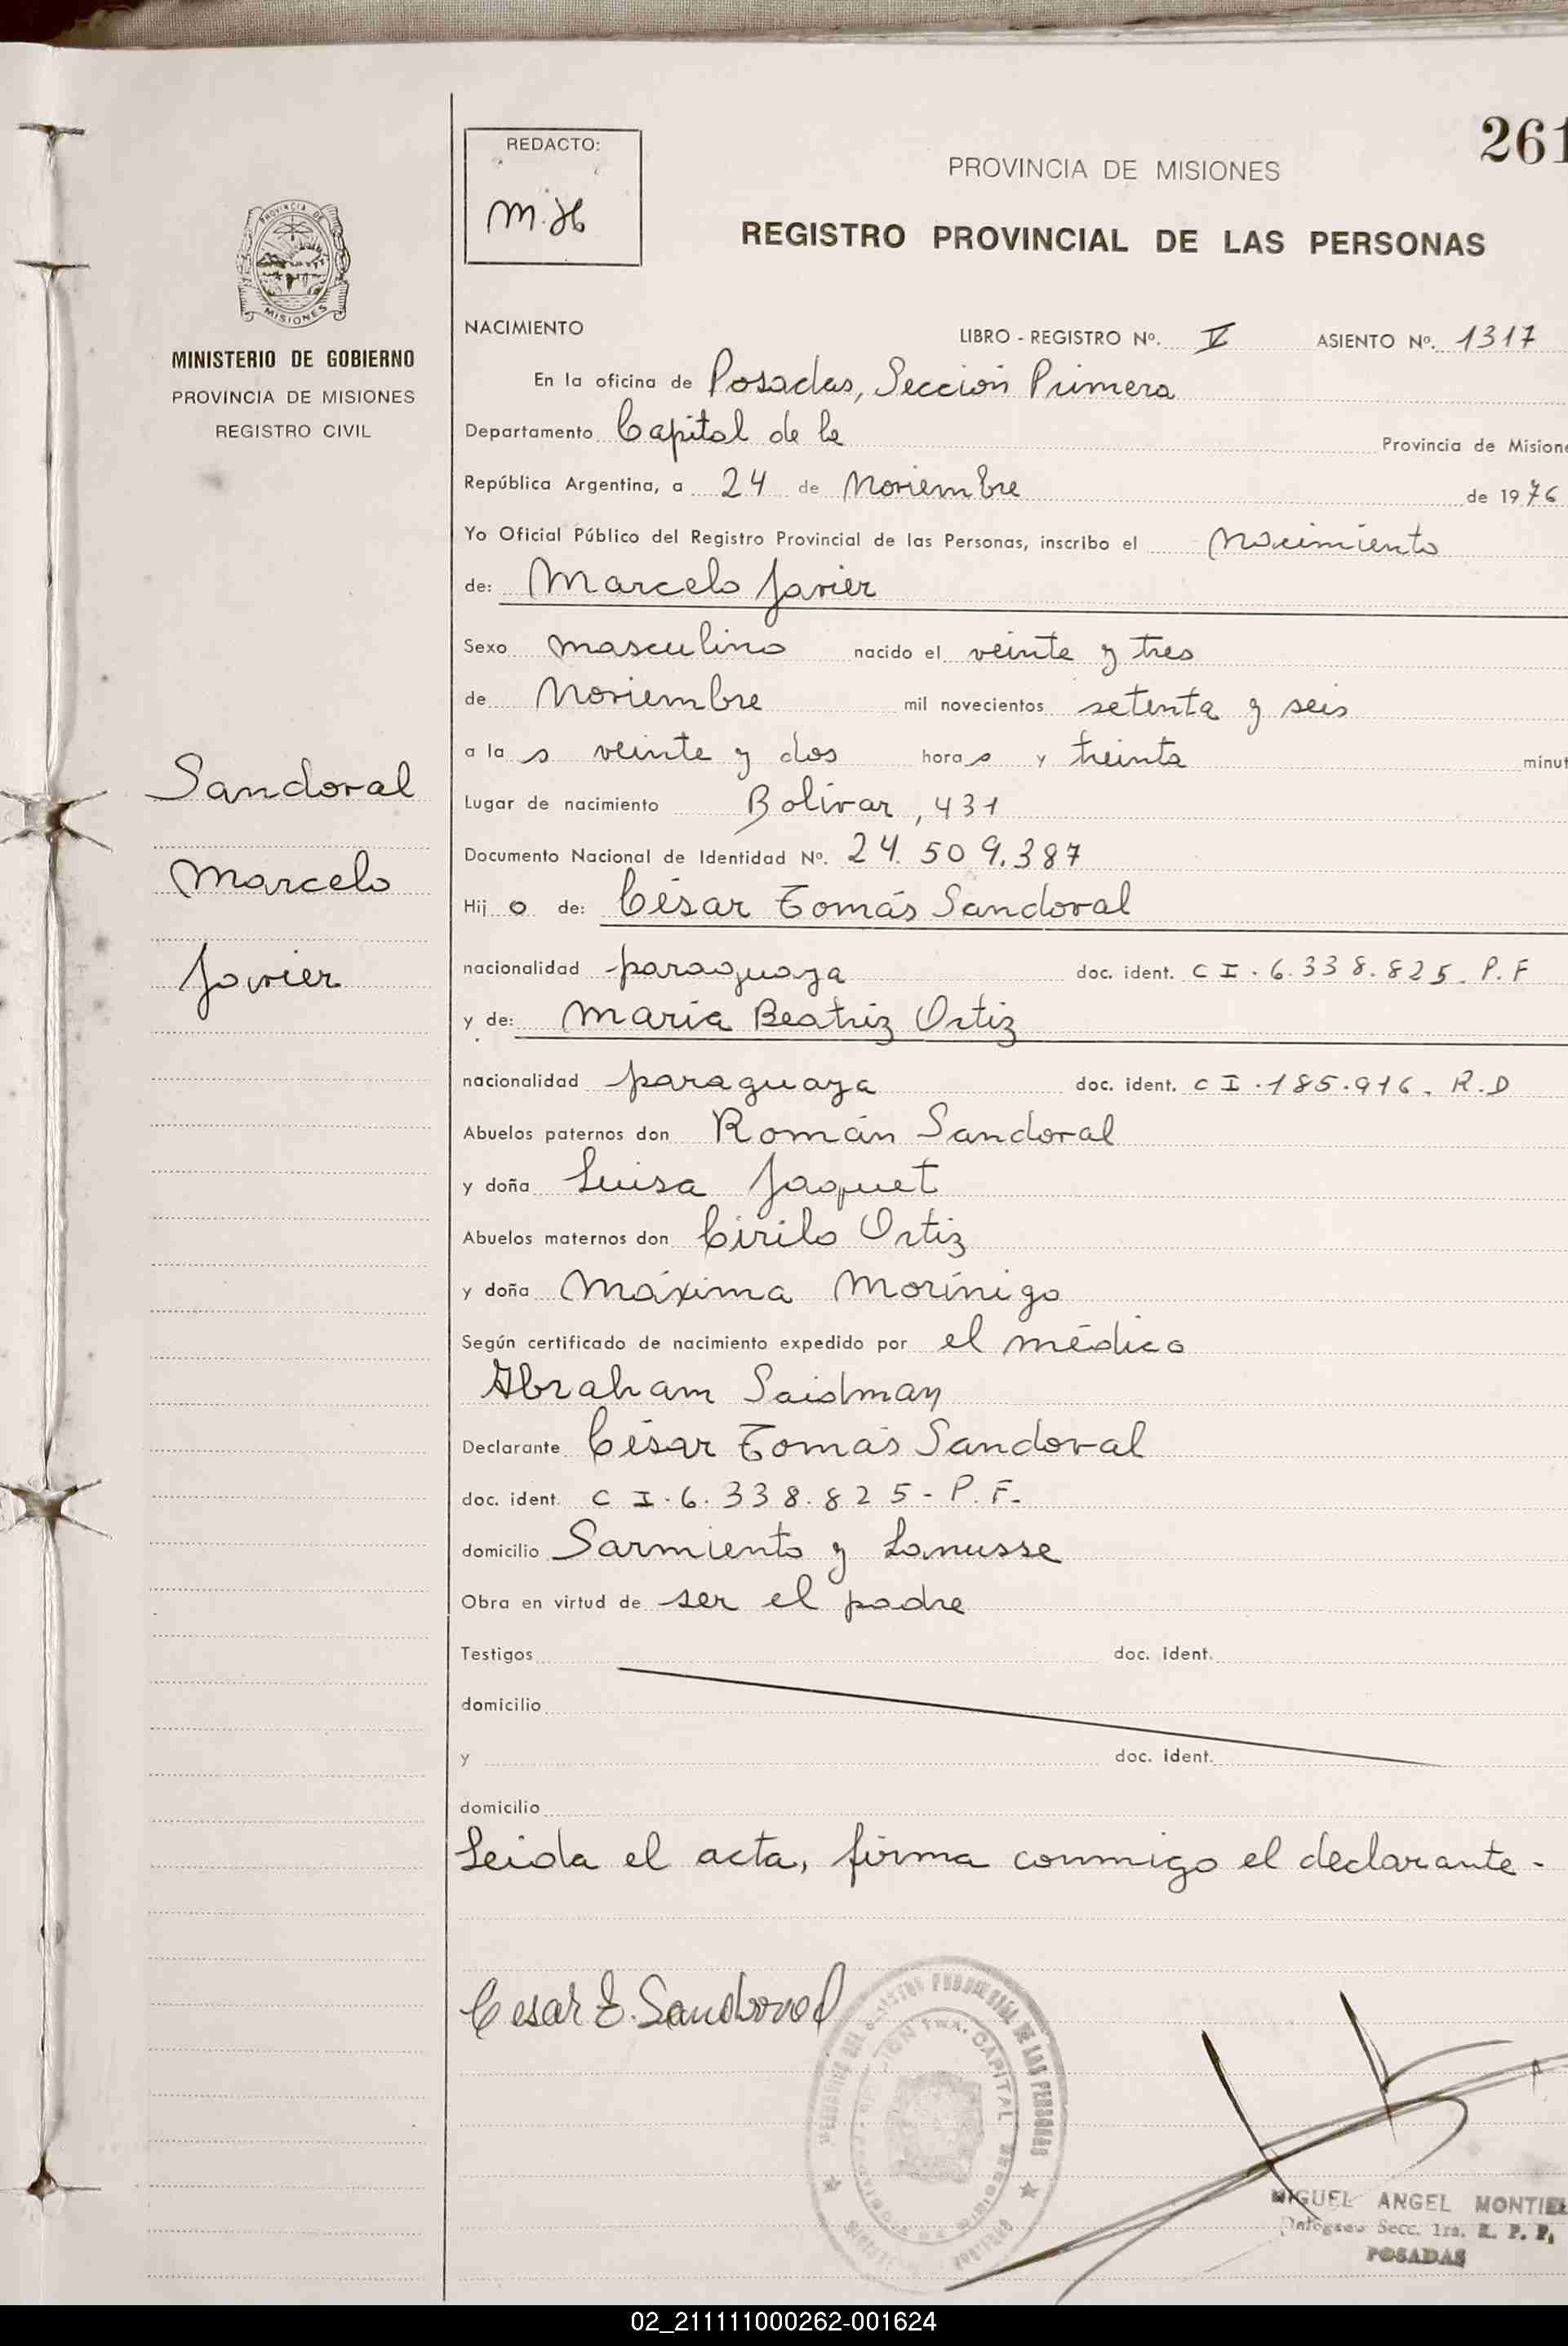 261
REDACTO:
M.H
PROVINCIA DE MISIONES
REGISTRO PROVINCIAL DE LAS PERSONAS
PROVINCIA DE
MISIONES
MINISTERIO DE GOBIERNO
PROVINCIA DE MISIONES
REGISTRO CIVIL
Sandoval
Marcelo
Javier
NACIMIENTO LIBRO - REGISTRO Nº. V ASIENTO Nº. 1317
En la oficina de Posadas, Sección Primera
Departamento Capital de la Provincia de Misione
República Argentina, a 24 de Noviembre de 1976
Yo Oficial Público del Registro Provincial de las Personas, inscribo el nacimiento
de: Marcelo Javier
Sexo masculino nacido el veinte y tres
de Noviembre mil novecientos setenta y seis
a la s veinte y dos hora s y treinta minut
Lugar de nacimiento Bolívar, 431
Documento Nacional de Identidad Nº. 24.509.387
Hij o de: César Tomás Sandoval
nacionalidad paraguaya doc. ident. C I. 6.338.825. P.F
y de: María Beatriz Ortiz
nacionalidad paraguaya doc. ident. C I. 185.916. R.D
Abuelos paternos don Román Sandoval
y doña Luisa Jaquet
Abuelos maternos don Cirilo Ortiz
y doña Máxima Morínigo
Según certificado de nacimiento expedido por el médico
Abraham Saidman
Declarante César Tomás Sandoval
doc. ident. C I. 6.338.825 - P.F.
domicilio Sarmiento y Lanusse
Obra en virtud de ser el padre
Testigos doc. ident.
domicilio
y doc. ident.
domicilio
Leida el acta, firma conmigo el declarante.
Cesar T. Sandoval
PROVINCIAL DE LAS PERSONAS
CAPITAL
MIGUEL ANGEL MONTIEL
Secc. 1ra. R. P. P.
POSADAS
02_211111000262-001624